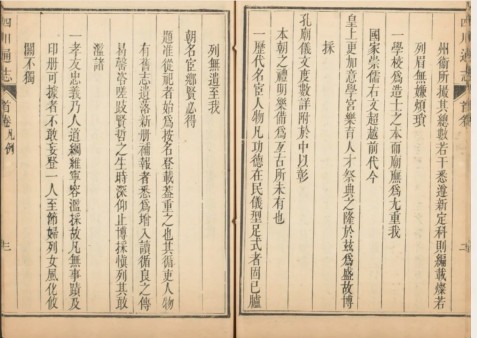 四川通志
首卷
州衛所撥其總數若干悉遵新定科則編載燦若
列眉無嫌煩瑣
一學校為造士之本而廟廡為尤重我
國家崇儒右文超越前代今
皇上更加意學宮樂育人才祭典之隆於玆為盛故博
採
孔廟儀文度數詳附於中以彰
本朝之禮明樂備為亙古所未有也
一歷代名宦人物凡功德在民儀型足式者固已臚
列無遺至我
朝名宦鄉賢必得
題准從祀者始為按名登載蓋重之也其循吏人物
有舊志遺落新册補報者悉為增入讀循良之傳
易馨咨嗟跂賢哲之生時深仰止博採慎列其敢
濫諸
一孝友忠義乃人道綱維寧容濫採故凡無事蹟及
印册可據者不敢妄登一人至節婦列女風化攸
關不獨
四川通志
首卷凡例
三